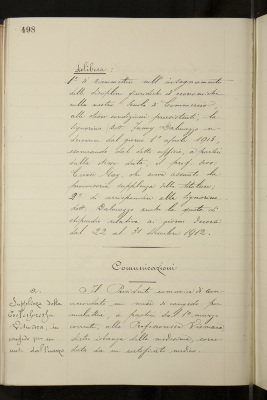 498
delibera:
1° di ammettere all'insegnamento
delle discipline giuridiche ed economiche
nella nostra Scuola di Commercio,
alle stesse condizioni preesistenti, la
signorina dott. Fanny Dalmazzo
dal giorno 1° aprile 1913,
cessando dal detto ufficio, a partire
dalla stessa data, il prof. avv.
che aveva assunto la
supplenza della titolare;
2° di corrispondere alla signorina
dott. Dalmazzo anche la quota di
stipendio relativa ai giorni
dal 22 al 31 dicembre 1912.
Comunicazioni
a.
Supplenza della
Professoressa
in
congedo per
Il Presidente annuncia di aver
accordato un mese di congedo per
malattia, a partire dal 1° marzo
corrente, alla Professoressa
dietro istanza della medesima, corre-
data da un certificato medico.